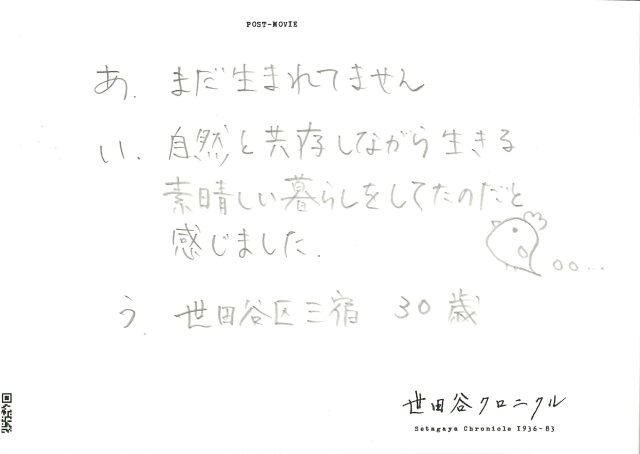 POST-MOVIE
あ. まだ生まれてません
い. 自然と共存しながら生きる
素晴しい暮らしをしてたのだと
感じました.
う. 世田谷区三宿 30歳
世田谷クロニクル
Setagaya Chronicle 1936-83